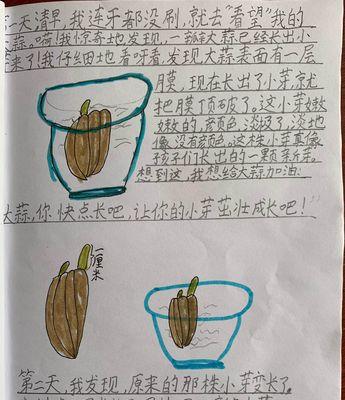 一天清早,我连牙都没刷,就去"看望"我的
蒜。嗬!我惊奇地发现,一瓣蒜已经长出小
芽来了!我仔细地看呀看,发现大蒜表面有一层
月膜,现在长出了小芽,就
把膜丁页破了。这小芽嫩
嫩的,黄颜色,淡极了,淡地
像没有颜色。这株小芽真像
孩子们长出的一颗新牙。
想到这,我想给大蒜加油:
大蒜,你快点长吧,让你的小芽茁壮成长吧!"
一厘米
第二天,我发现,原来的那株小芽变长了。